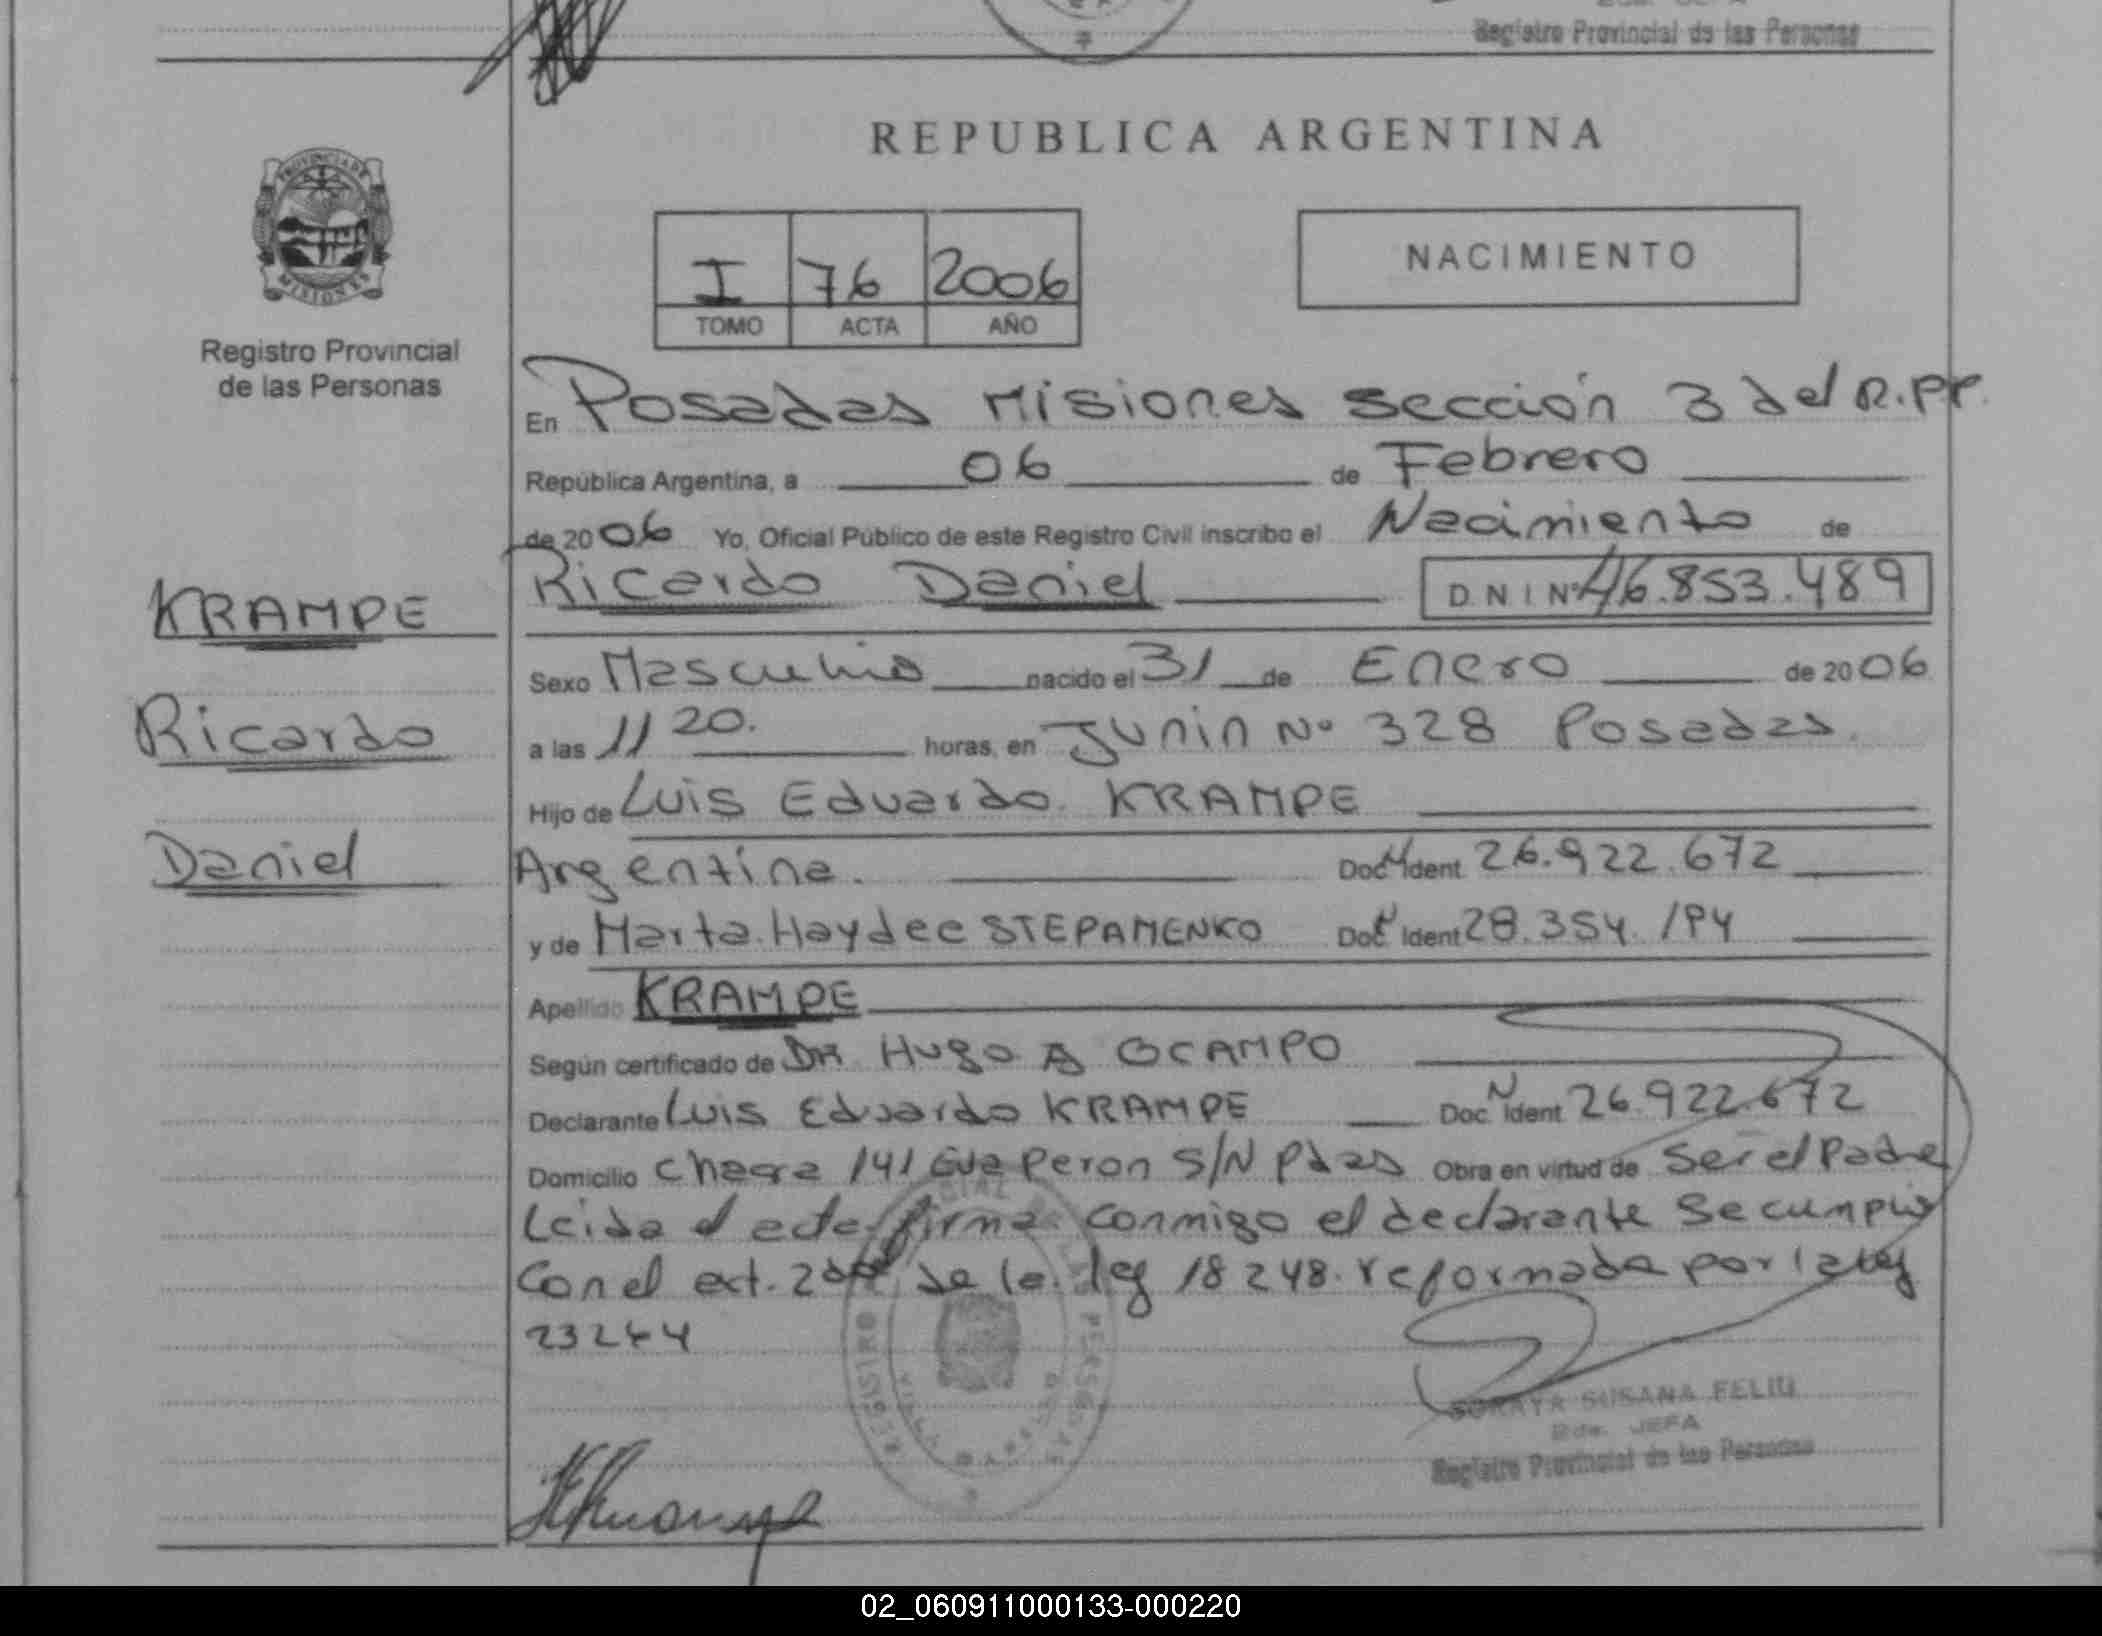 Registro Provincial de las Personas
REPUBLICA ARGENTINA
PROVINCIA DE
MISIONES
Registro Provincial
de las Personas
I 76 2006
TOMO ACTA AÑO
NACIMIENTO
En Posadas Misiones sección 3 del R.P.P.
República Argentina, a 06 de Febrero
de 2006 Yo, Oficial Público de este Registro Civil inscribo el Nacimiento de
Ricardo Daniel D N I Nº 46.853.489
KRAMPE
Ricardo
Daniel
Sexo Masculino nacido el 31 de Enero de 2006
a las 11 20. horas, en Junin Nº 328 Posadas.
Hijo de Luis Eduardo KRAMPE
Argentina. Doc N Ident 26.922.672
y de Marta Haydee STEPAMENKO Doc N Ident 28.354.194
Apellido KRAMPE
Según certificado de DR Hugo A OCAMPO
Declarante Luis Eduardo KRAMPE Doc. N Ident 26.922.672
Domicilio chacra 141 Eva Peron S/N Pdas Obra en virtud de ser el Padre
Leida el acta firma conmigo el declarante se cumplio
Con el art. 2do de la ley 18248 reformada por la ley
23264
REGISTRO PROVINCIAL DE LAS PERSONAS
SORAYA SUSANA FELIU
2da. JEFA
Registro Provincial de las Personas
02_060911000133-000220